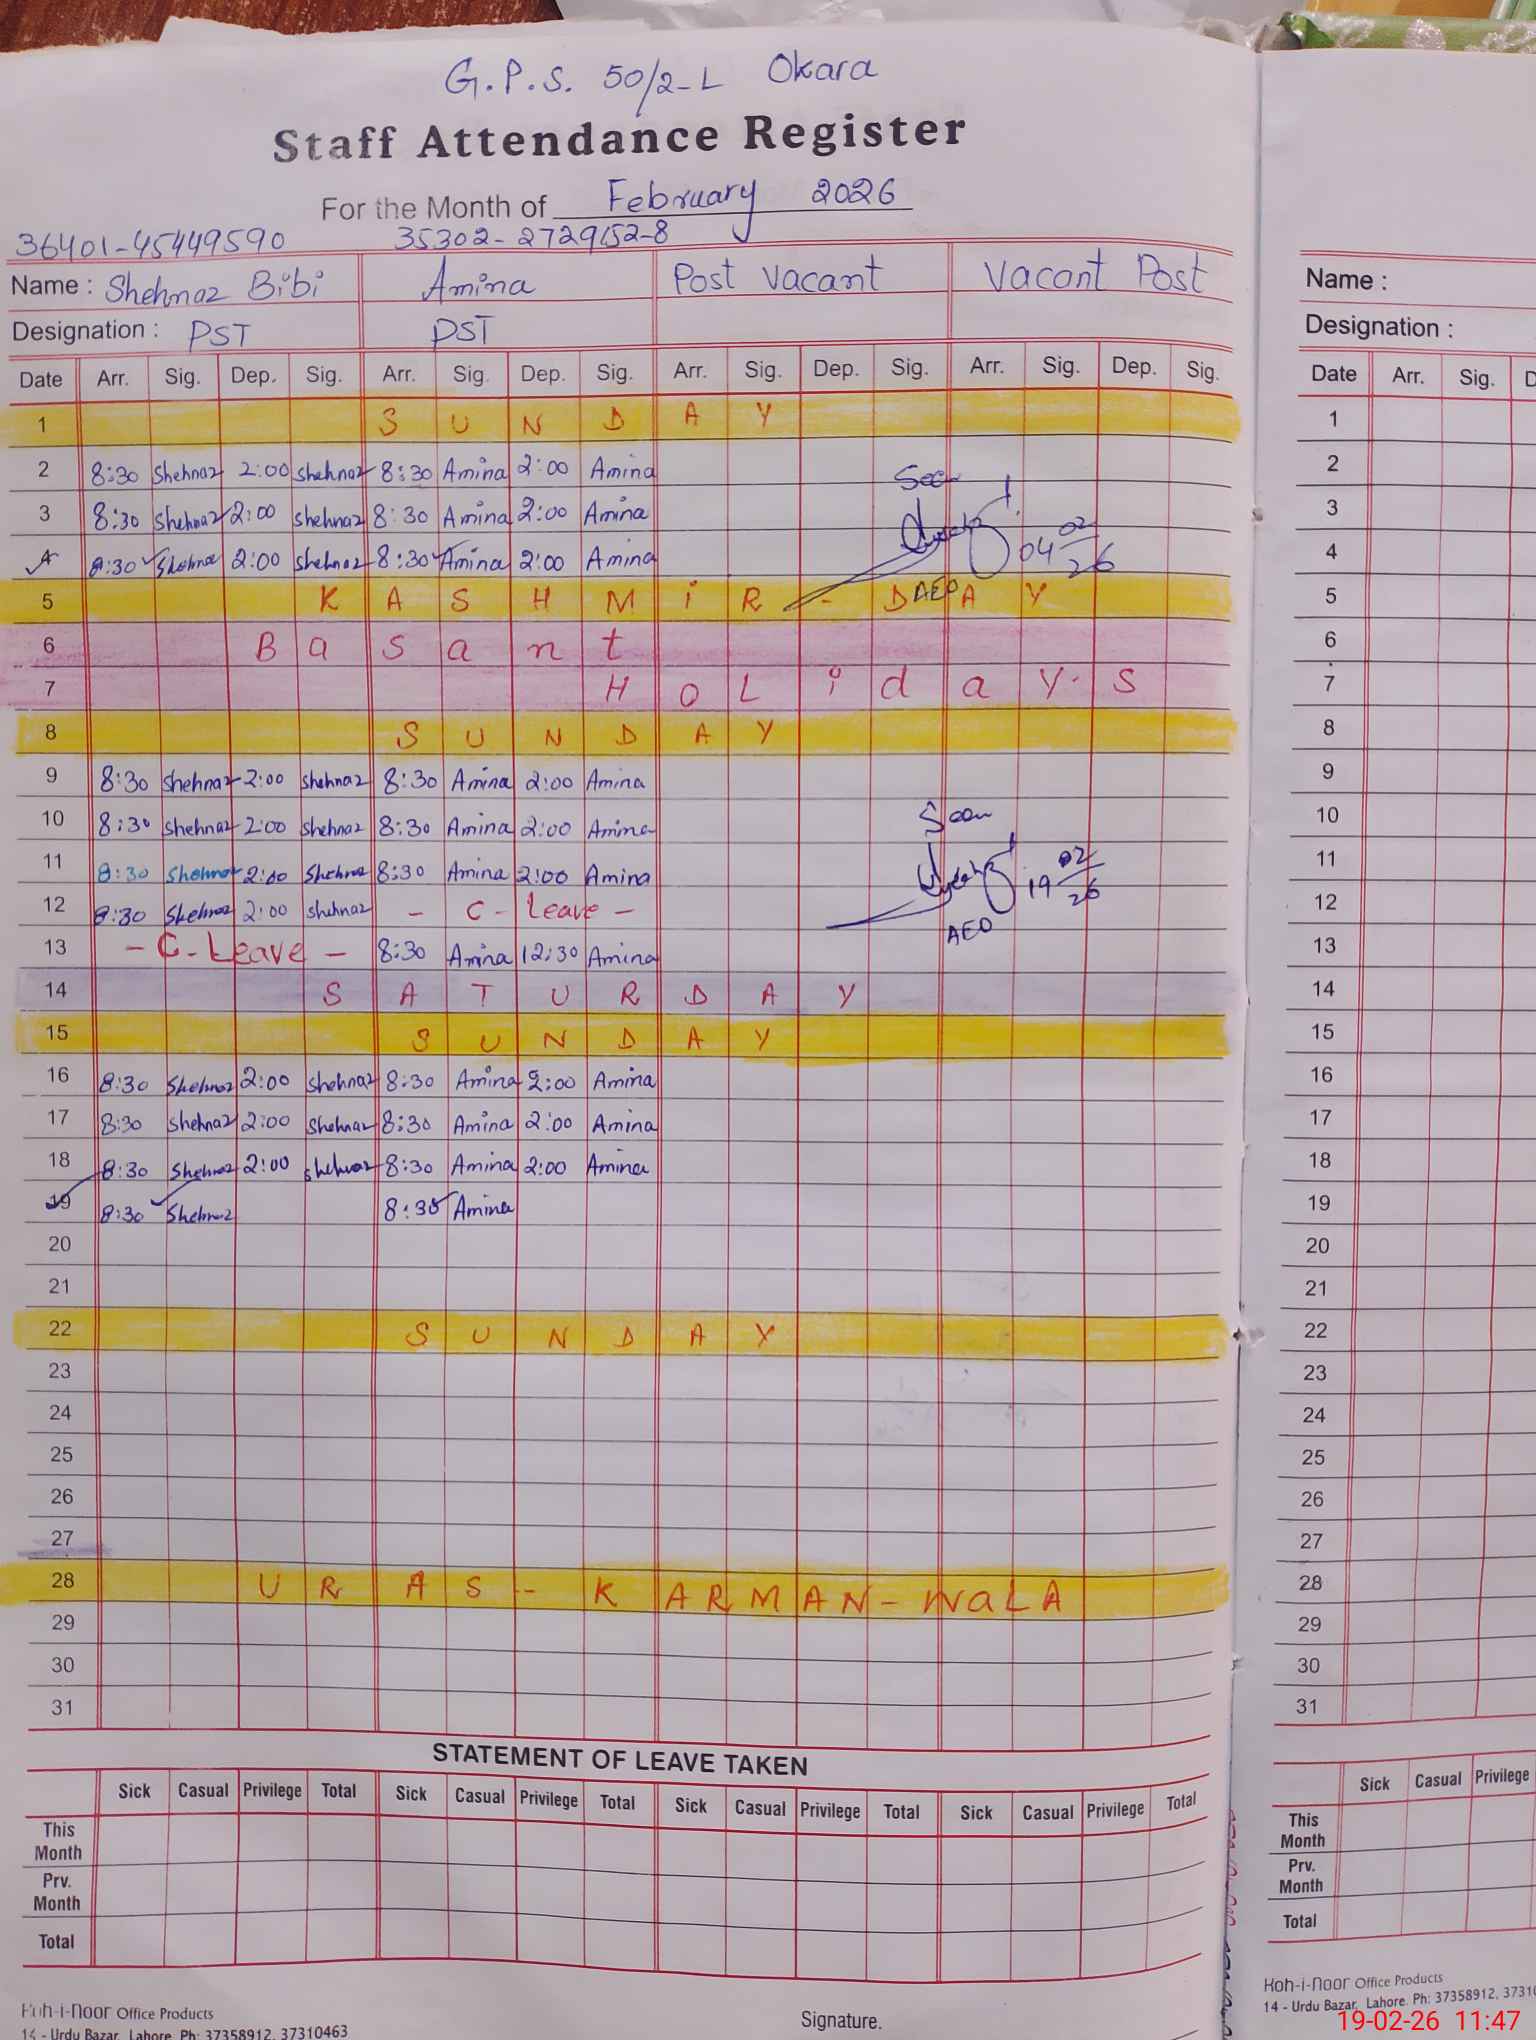 G.P.S. 50/2-L Okara
Staff Attendance Register
For the Month of February 2026
36401-45449590 35302-2729152-8
Name : Shehnaz Bibi Amina Post Vacant Vacant Post
Designation : PST PST
Date Arr. Sig. Dep. Sig. Arr. Sig. Dep. Sig. Arr. Sig. Dep. Sig. Arr. Sig. Dep. Sig.
1 S U N D A Y
2 8:30 Shehnaz 2:00 Shehnaz 8:30 Amina 2:00 Amina
Seen
3 8:30 Shehnaz 2:00 Shehnaz 8:30 Amina 2:00 Amina
4 8:30 Shehnaz 2:00 Shehnaz 8:30 Amina 2:00 Amina 04 02/26
5 K A S H M i R - D A Y
AEO
6 B a s a n t
7 H O L i d a y s
8 S U N D A Y
9 8:30 Shehnaz 2:00 Shehnaz 8:30 Amina 2:00 Amina
10 8:30 Shehnaz 2:00 Shehnaz 8:30 Amina 2:00 Amina
Seen
11 8:30 Shehnaz 2:00 Shehnaz 8:30 Amina 2:00 Amina 19 02/26
12 8:30 Shehnaz 2:00 Shehnaz - C - Leave -
AEO
13 - C - Leave - 8:30 Amina 12:30 Amina
14 S A T U R D A Y
15 S U N D A Y
16 8:30 Shehnaz 2:00 Shehnaz 8:30 Amina 2:00 Amina
17 8:30 Shehnaz 2:00 Shehnaz 8:30 Amina 2:00 Amina
18 8:30 Shehnaz 2:00 Shehnaz 8:30 Amina 2:00 Amina
19 8:30 Shehnaz 8:30 Amina
20
21
22 S U N D A Y
23
24
25
26
27
28 U R A S - K A R M A N - W a L A
29
30
31
STATEMENT OF LEAVE TAKEN
Sick Casual Privilege Total Sick Casual Privilege Total Sick Casual Privilege Total Sick Casual Privilege Total
This Month
Prv. Month
Total
Koh-i-Noor Office Products
14 - Urdu Bazar, Lahore Ph: 37358912, 37310463
Signature.
Name :
Designation :
Date Arr. Sig. D
1
2
3
4
5
6
7
8
9
10
11
12
13
14
15
16
17
18
19
20
21
22
23
24
25
26
27
28
29
30
31
Sick Casual Privilege
This Month
Prv. Month
Total
Koh-i-Noor Office Products
14 - Urdu Bazar, Lahore. Ph: 37358912, 3731
19-02-26 11:47